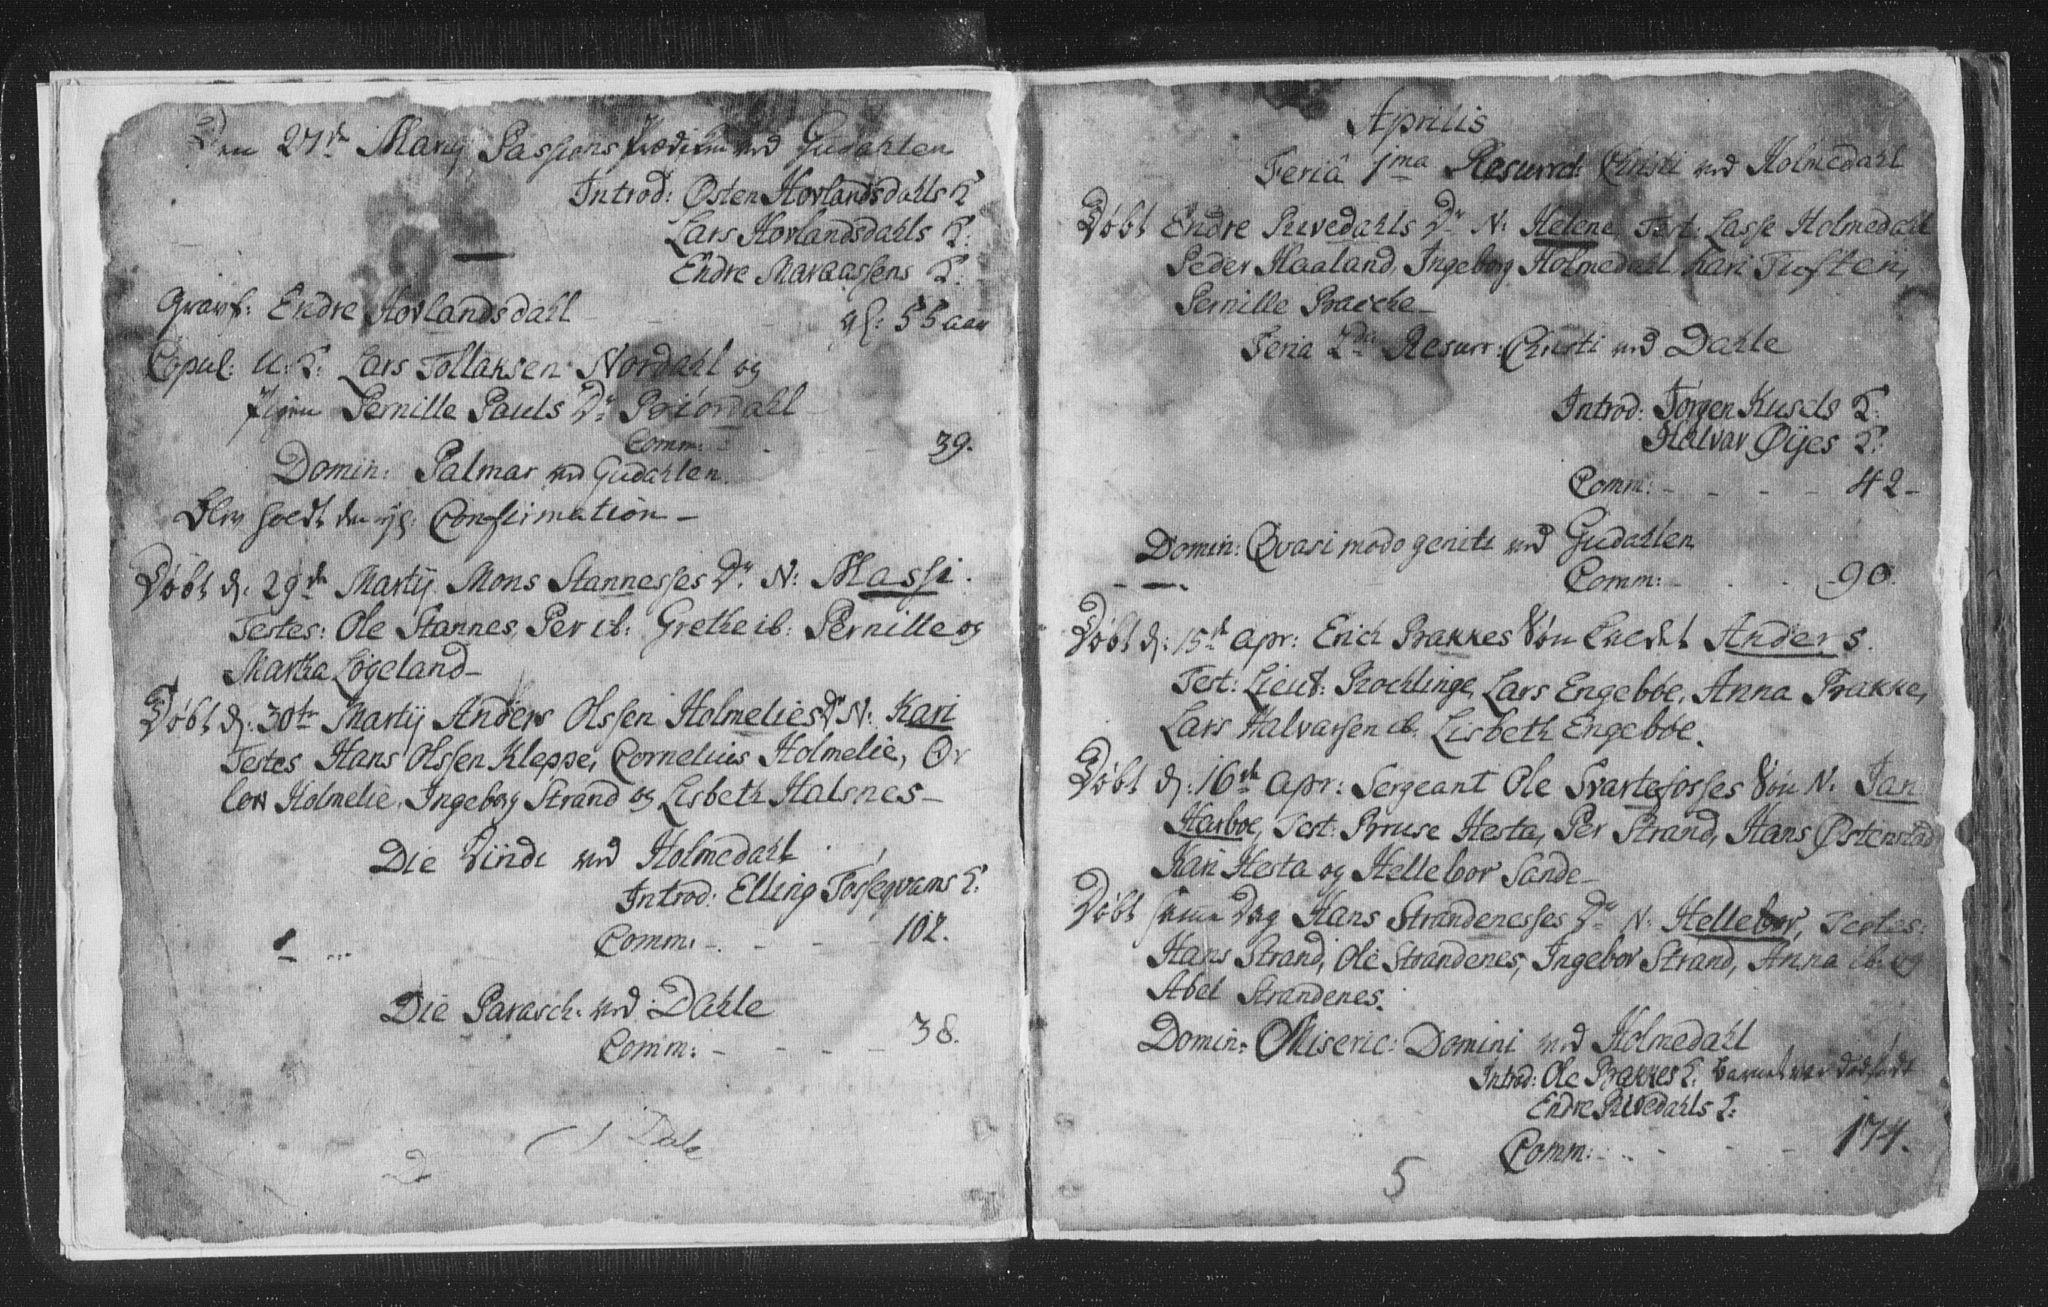 Den 27de Martij Passions Prædiken ved Gudahlen
Introd: Østen Hovlandsdahls K:
Lars Hovlandsdahls K:
Endre Maraassens K:
Gravf: Endre Hovlandsdahl - - gl: 55 aar
Copul: U: K: Lars Tollaksen Nordahl og
Pigen Pernille Pauls Dr
Comm: - - 39.
Domin: Palmar ved Gudahlen
Blev holdt Confirmation -
Døbt d: 29de Martij Mons Stannesses Dr N: Massi.
Testes: Ole Stannes, Per ib: Grethe ib: Pernille og
Martha Løgeland -
Døbt d: 30te Martij Anders Olssen Holmelies Dr N: Kari
Testes Hans Olssen Kleppe, Cornelius Holmelie, Or
Holmelie, Ingeborg Strand og Lisbeth Halsnes -
Die Viridi ved Holmedahl
Introd: Elling Tosseqvams K:
Comm: - - - 102.
Die Parasch: ved Dahle
Comm: - - - - 38.
Dale
Aprilis
Feriâ 1ma Resurrect: Christi ved Holmedahl
Døbt Endre Rivedahls Dr N: Helene Test: Lasse Holmedahl
Peder Haaland, Ingeborg Holmedahl, Kari Tuften,
Pernille Bracke -
Feria 2da Resurr: Christi ved Dahle
Introd: Jørgen Kusels K:
Halvar Øijes K:
Comm: - - - - 42 -
Domin: Qvasi modo geniti ved Gudahlen
Comm: - - - 90.
Døbt d: 15de Apr: Erich Brakkes Søn kaldet Anders.
Test: Lieut: Rochlinge, Lars Engebøe, Anna Brakke,
Lars Halvarsen ib, Lisbeth Engebøe.
Døbt d: 16de Apr: Sergeant Ole Svartefosses Søn N: Jan
Harboe, Test: Bruse Hesta, Per Strand, Hans Østenstad
Kari Hesta og Hellebor Sande -
Døbt samme Dag Hans Strandenesses Dr N: Hellebor, Testes:
Hans Strand, Ole Strandenes, Ingebor Strand, Anna ib: og
Abel Strandenes.
Domin: Miseric: Domini ved Holmedahl
Introd: Ole Brakkes K: Barnet var dødfødt
Endre Rivedahls K:
Comm: - - - - 174.
5